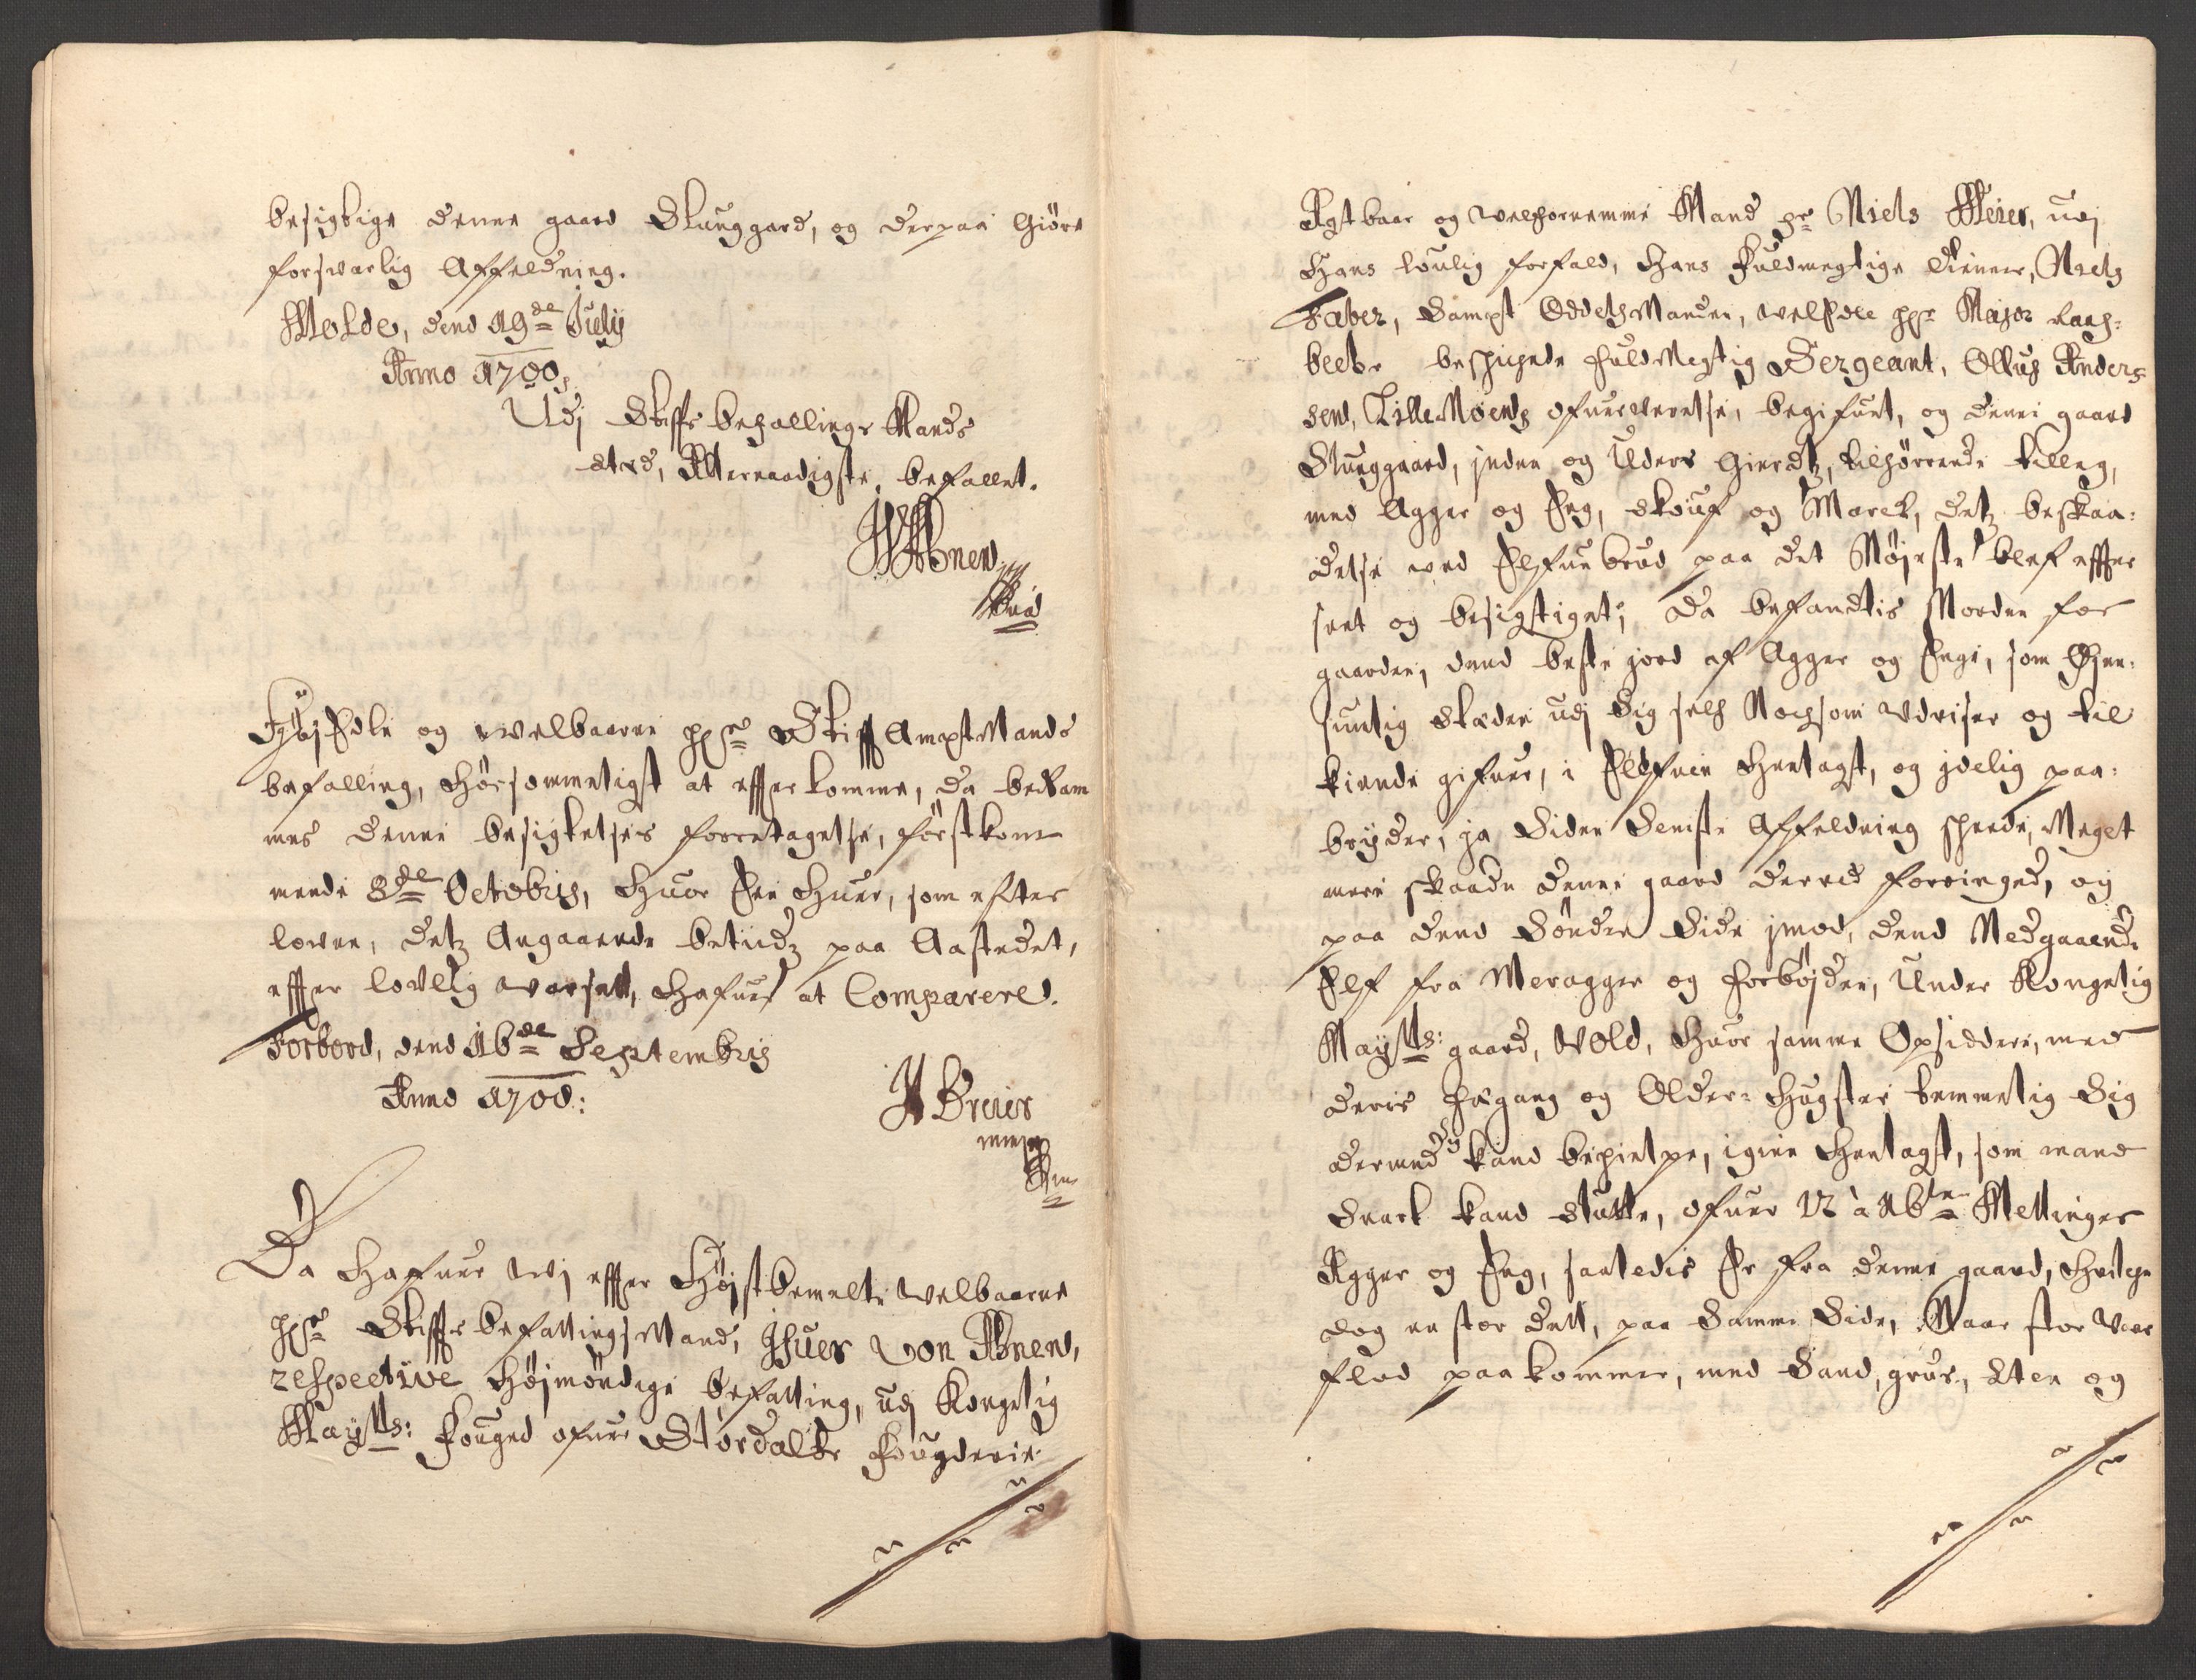 besigtige denne gaard Skuuggard, og derpaa Giöre
forsvarlig Affeldning.
Molde, dend 19de Julij
Anno 1700,
Udj Stiffts befallings Mands
sted, Allernaadigste befallet.
Høj Edle og welbaarne hr: Stifft Ampt Mands
befalling, Hörsommeligst at effterkomme, da beram
mes denne besigtelses foretagelse, förstkom
mende 8de Octobris, Huor Een Huer, som efter
lowen, detz Angaaende betiudz paa Aastedet,
effter lovlig warsell, Hafuer at Comparere.
Forbord, dend 16de Septembris
Anno 1700:
Da Hafuer wj effter Højstbemelte welbaarne
hr: Stiffts befallings Mand, Ifuer von Ahnen,
respective Højmöndige befalling, udj Kongelig
Mayts: Fouged ofuer Stördalls Fougderie
Agtbaar og welfornemme Mand hr: Niels Meier, udj
Hans loulig forfald, Hans Fuldmegtige Tienner, Niels
Faber, Sampt Oddels Manden, wel Edle hr: Major
beschichede Fuldmegtig Sergeant, Olluf Anders:
sen, Lille Moens ofuerwerelse, begifuet, og denne gaard
Skuuggaard, inden og Uden Gierdz, tilhörrende tilleg,
med Agger og Eng, Skouf og Marck, detz beskaa:
delse ved Elfuebrud paa det Nøjeste blef effter
seet og besigtiget; Da befandtis Norden for
gaarden, dend beste jord af Agger og Enge, som Öhen:
siunlig Skeden udj Sig self Nochsom Udviser og til
kiende gifuer, i Elfuen Hentagt, og jdelig paa:
bryder, ja Siden Seniste Affeldning scheede, Meget
mere skaade denne gaard derved forringed, og
paa dend Söndre Side jmod, dend Nedgaaende
Elf fra Meragger og forböjden, Under Kongelig
Mayts: gaard, Wold, Huor samme Opsiddere, med
deris Fægang og Older: Hugster temmelig Sig
dermed kand behielpe, igien Hentagt, som mand
Snart kand Slutte, ofuer 12 à 16ten Mellinger
Agger og Eng, saaledis Er fra denne gaard,
dog en stor deell, paa Samme Side, Naar stor Vaar
flod paakommer, med Sand, grus, Sten og